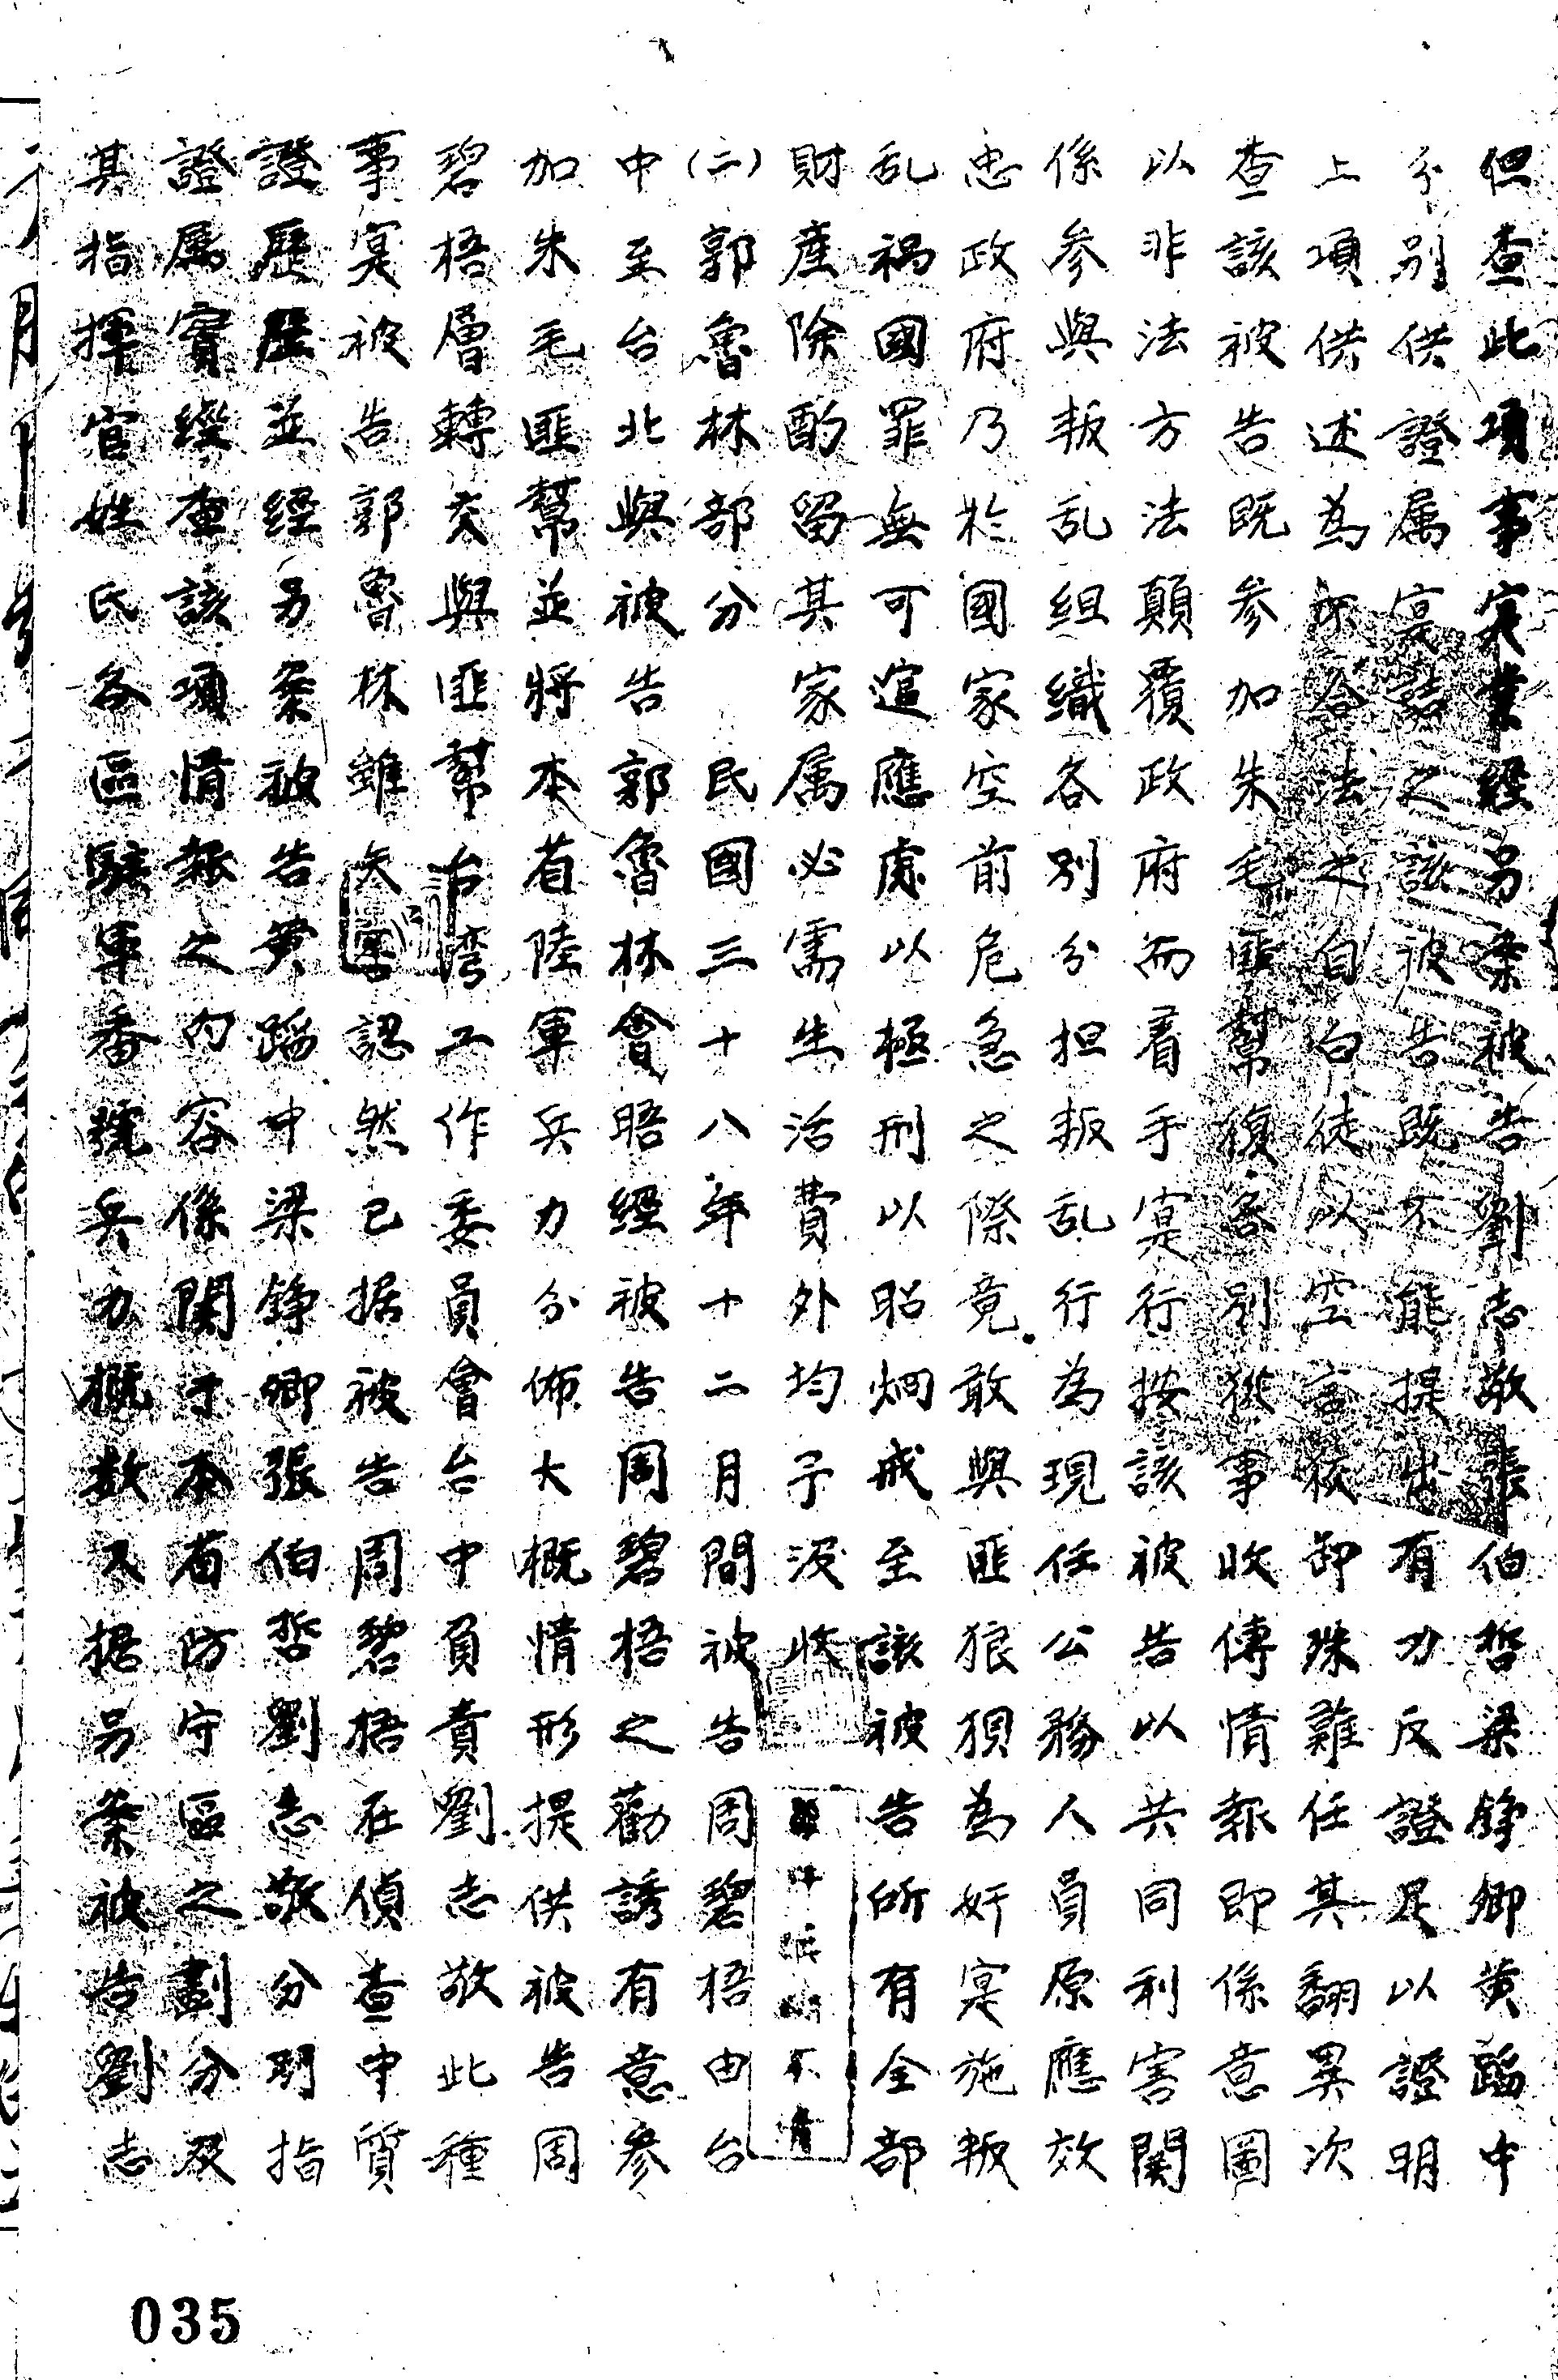 但查此項事实業經另案被告劉志敬張伯哲梁錚卿黃蹈中
分別供證属寔誌之該被告既不能提出有力反證足以證明
上項供述為不合法之自白徒以空言狡卸殊難任其翻異次
查該被告既参加朱毛匪幫復各別從事收傳情報即係意圖
以非法方法顛覆政府而着手寔行按該被告以共同利害関
係参與叛乱組織各別分担叛乱行為現任公務人員原應效
忠政府乃於國家空前危急之際竟敢與匪狼狽為奸寔施叛
乱禍國罪無可逭應處以極刑以昭炯戒至該被告所有全部
財產除酌留其家属必需生活費外均予没收
(二)郭魯林部分 民國三十八年十二月間被告周碧梧由台
中至台北與被告郭魯林會晤經被告周碧梧之勸誘有意参
加朱毛匪幫並將本省陸軍兵力分佈大概情形提供被告周
碧梧層轉交與匪幫台湾工作委員會台中負責劉志敬此種
事寔被告郭魯林雖矢否認然已据被告周碧梧在偵查中質
證歷歷並經另案被告黃蹈中梁錚卿張伯哲劉志敬分別指
證属實經查該項情報之內容係関于本省防守區之劃分及
其指揮官姓氏各區駐軍番號兵力概数又据另案被告劉志
035